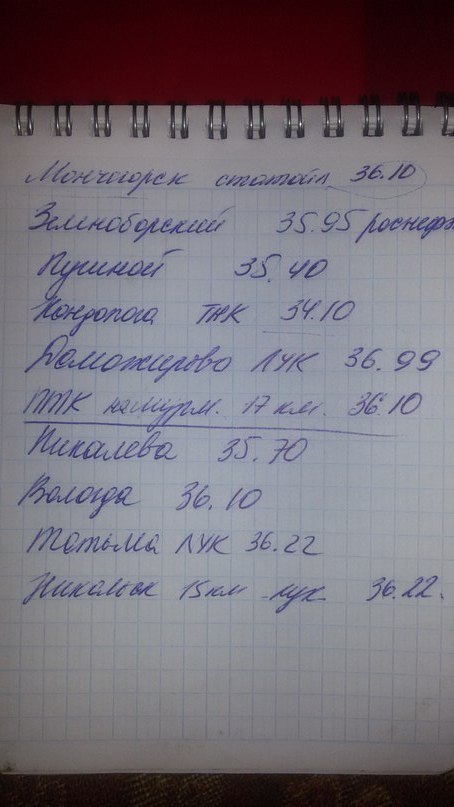 Мончогорск статойл 36.10
Зеленоборский 35.95 роснефт
Пушной 35.40
Кондопога ТНК 34.10
Доможирово ЛУК 36.99
ПТК на мурм. 17 км. 36.10
Пикалева 35.70
Вологда 36.10
Тотьма ЛУК 36.22
Никольск 15 км лук 36.22.